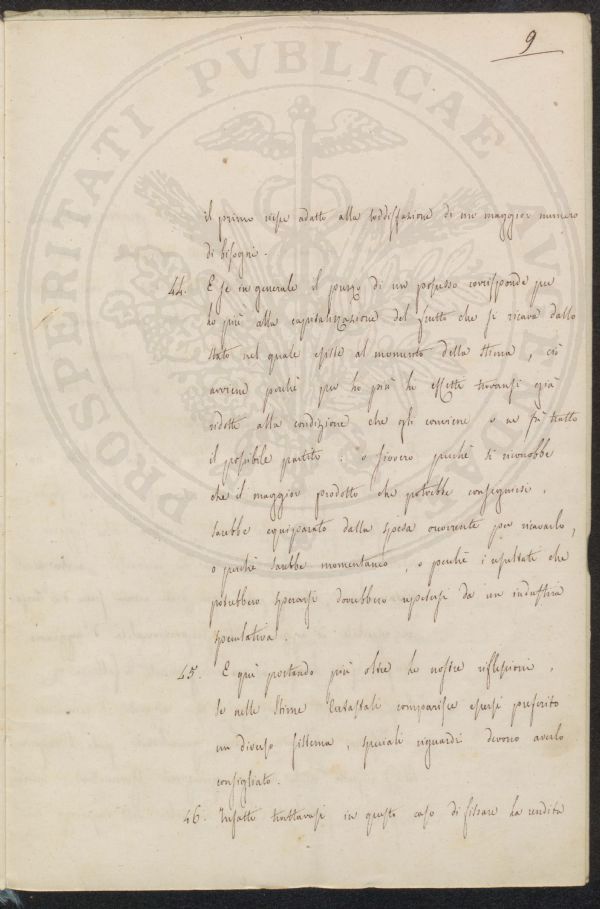 9
il primo riesce adatto alla soddisfazione di un maggior numero
di bisogni.
44. E se in generale il prezzo di un possesso corrisponde per
lo più alla capitalizzazione del frutto che si ricava dallo
stato nel quale esiste al momento della stima, ciò
avviene perchè per lo più le trovansi già
ridotte alla condizione che gli conviene o ne fù tratto
il possibile partito: o sivvero perchè si riconobbe
che il maggior prodotto che potrebbe conseguirsi,
sarebbe equiparato dalla spesa occorrente per ricavarlo,
o perchè sarebbe momentaneo, o perchè i resultati che
potrebbero sperarsi dovrebbero ripetersi da un industria
speculativa.
45. E quì portando più oltre le nostre riflessioni,
se nelle Stime Catastali comparisce essersi preferito
un diverso sistema, speciali riguardi devono averlo
consigliato.
46. Infatti trattavasi in questo caso di fissare la rendita
PROSPERITATI PVBLICAE AVGENDAE